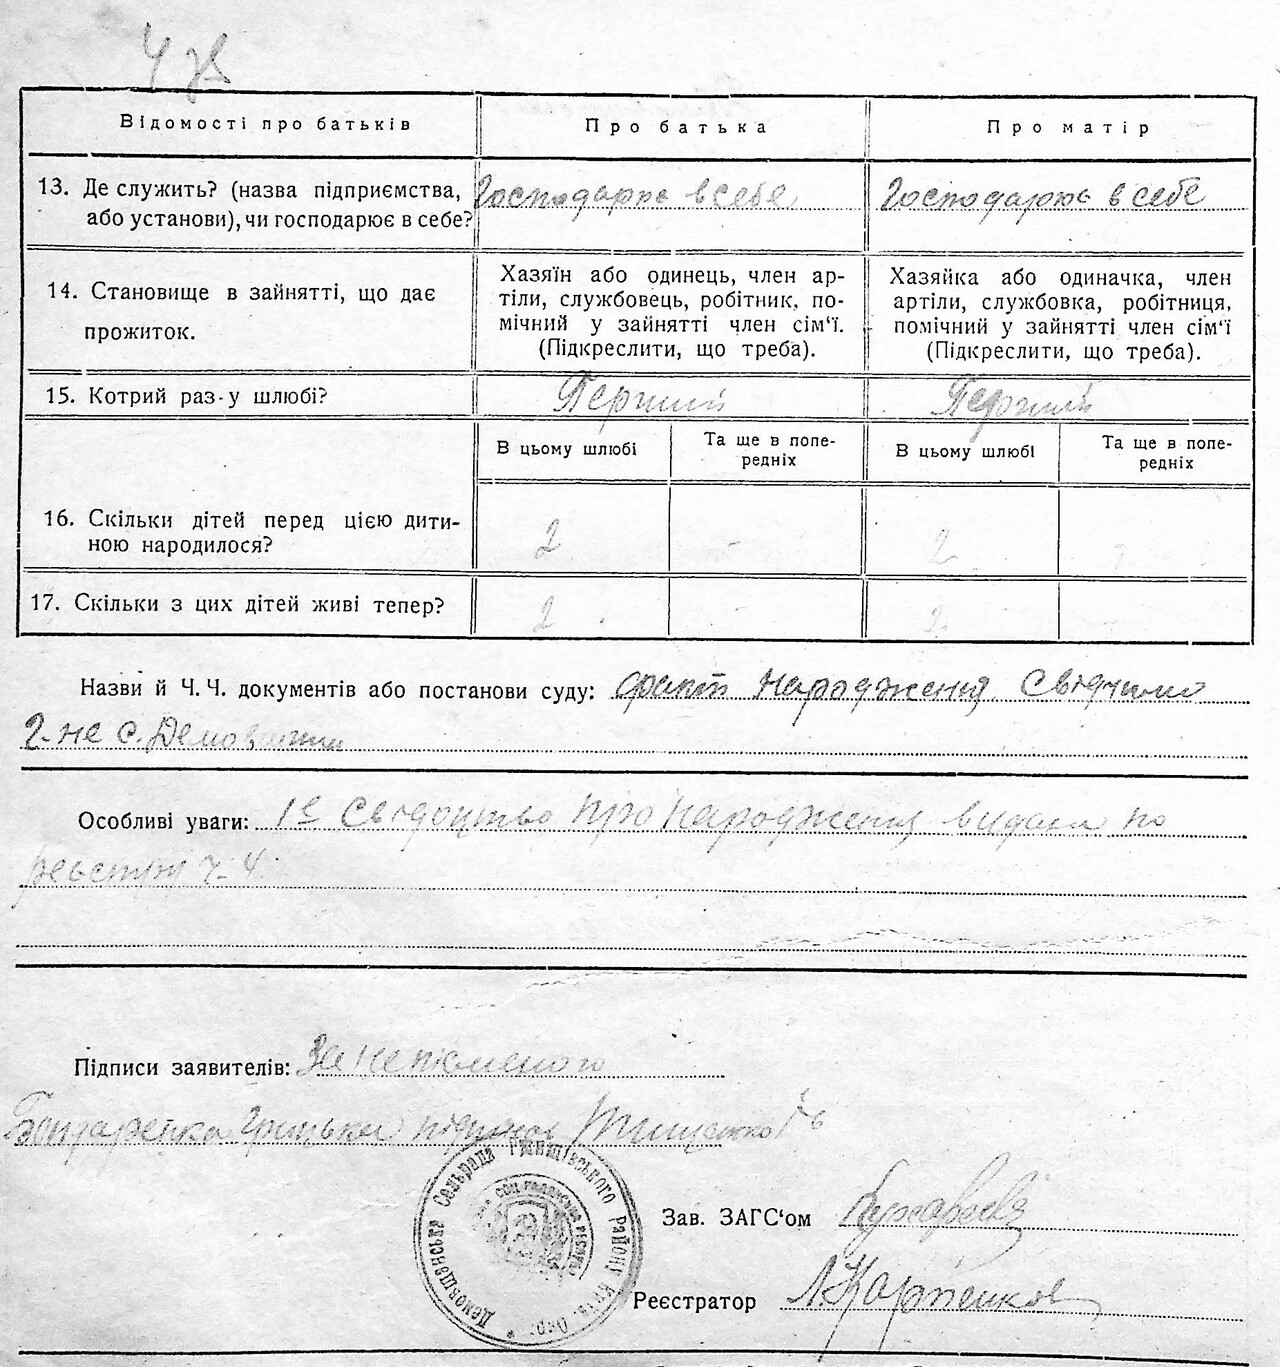 4 зв
Відомості про батьків
Про батька
Про матір
13. Де служить? (назва підприємства,
або установи), чи господарює в себе?
Господарює в себе
Господарює в себе
14. Становище в зайнятті, що дає
прожиток.
Хазяїн або одинець, член ар-
тіли, службовець, робітник, по-
мічний у зайнятті член сім‘ї.
(Підкреслити, що треба).
Хазяйка або одиначка, член
артіли, службовка, робітниця,
помічний у зайнятті член сім‘ї
(Підкреслити, що треба).
15. Котрий раз у шлюбі?
Перший
Перший
В цьому шлюбі
Та ще в попе-
редніх
В цьому шлюбі
Та ще в попе-
редніх
16. Скільки дітей перед цією дити-
ною народилося?
2
-
2
17. Скільки з цих дітей живі тепер?
2
-
2
Назви й Ч. Ч. документів або постанови суду: факт народження
с.
Особливі уваги: 1е Свідоцтво про народження видане по
реєстру ч-4.
Підписи заявителів: За неписьменого
Бондаренка Грицька підписав
Демовщенська Сельрада Ржищівського Району Київ. Окр.
Зав. ЗАГС‘ом
Реєстратор Л. Карпенков